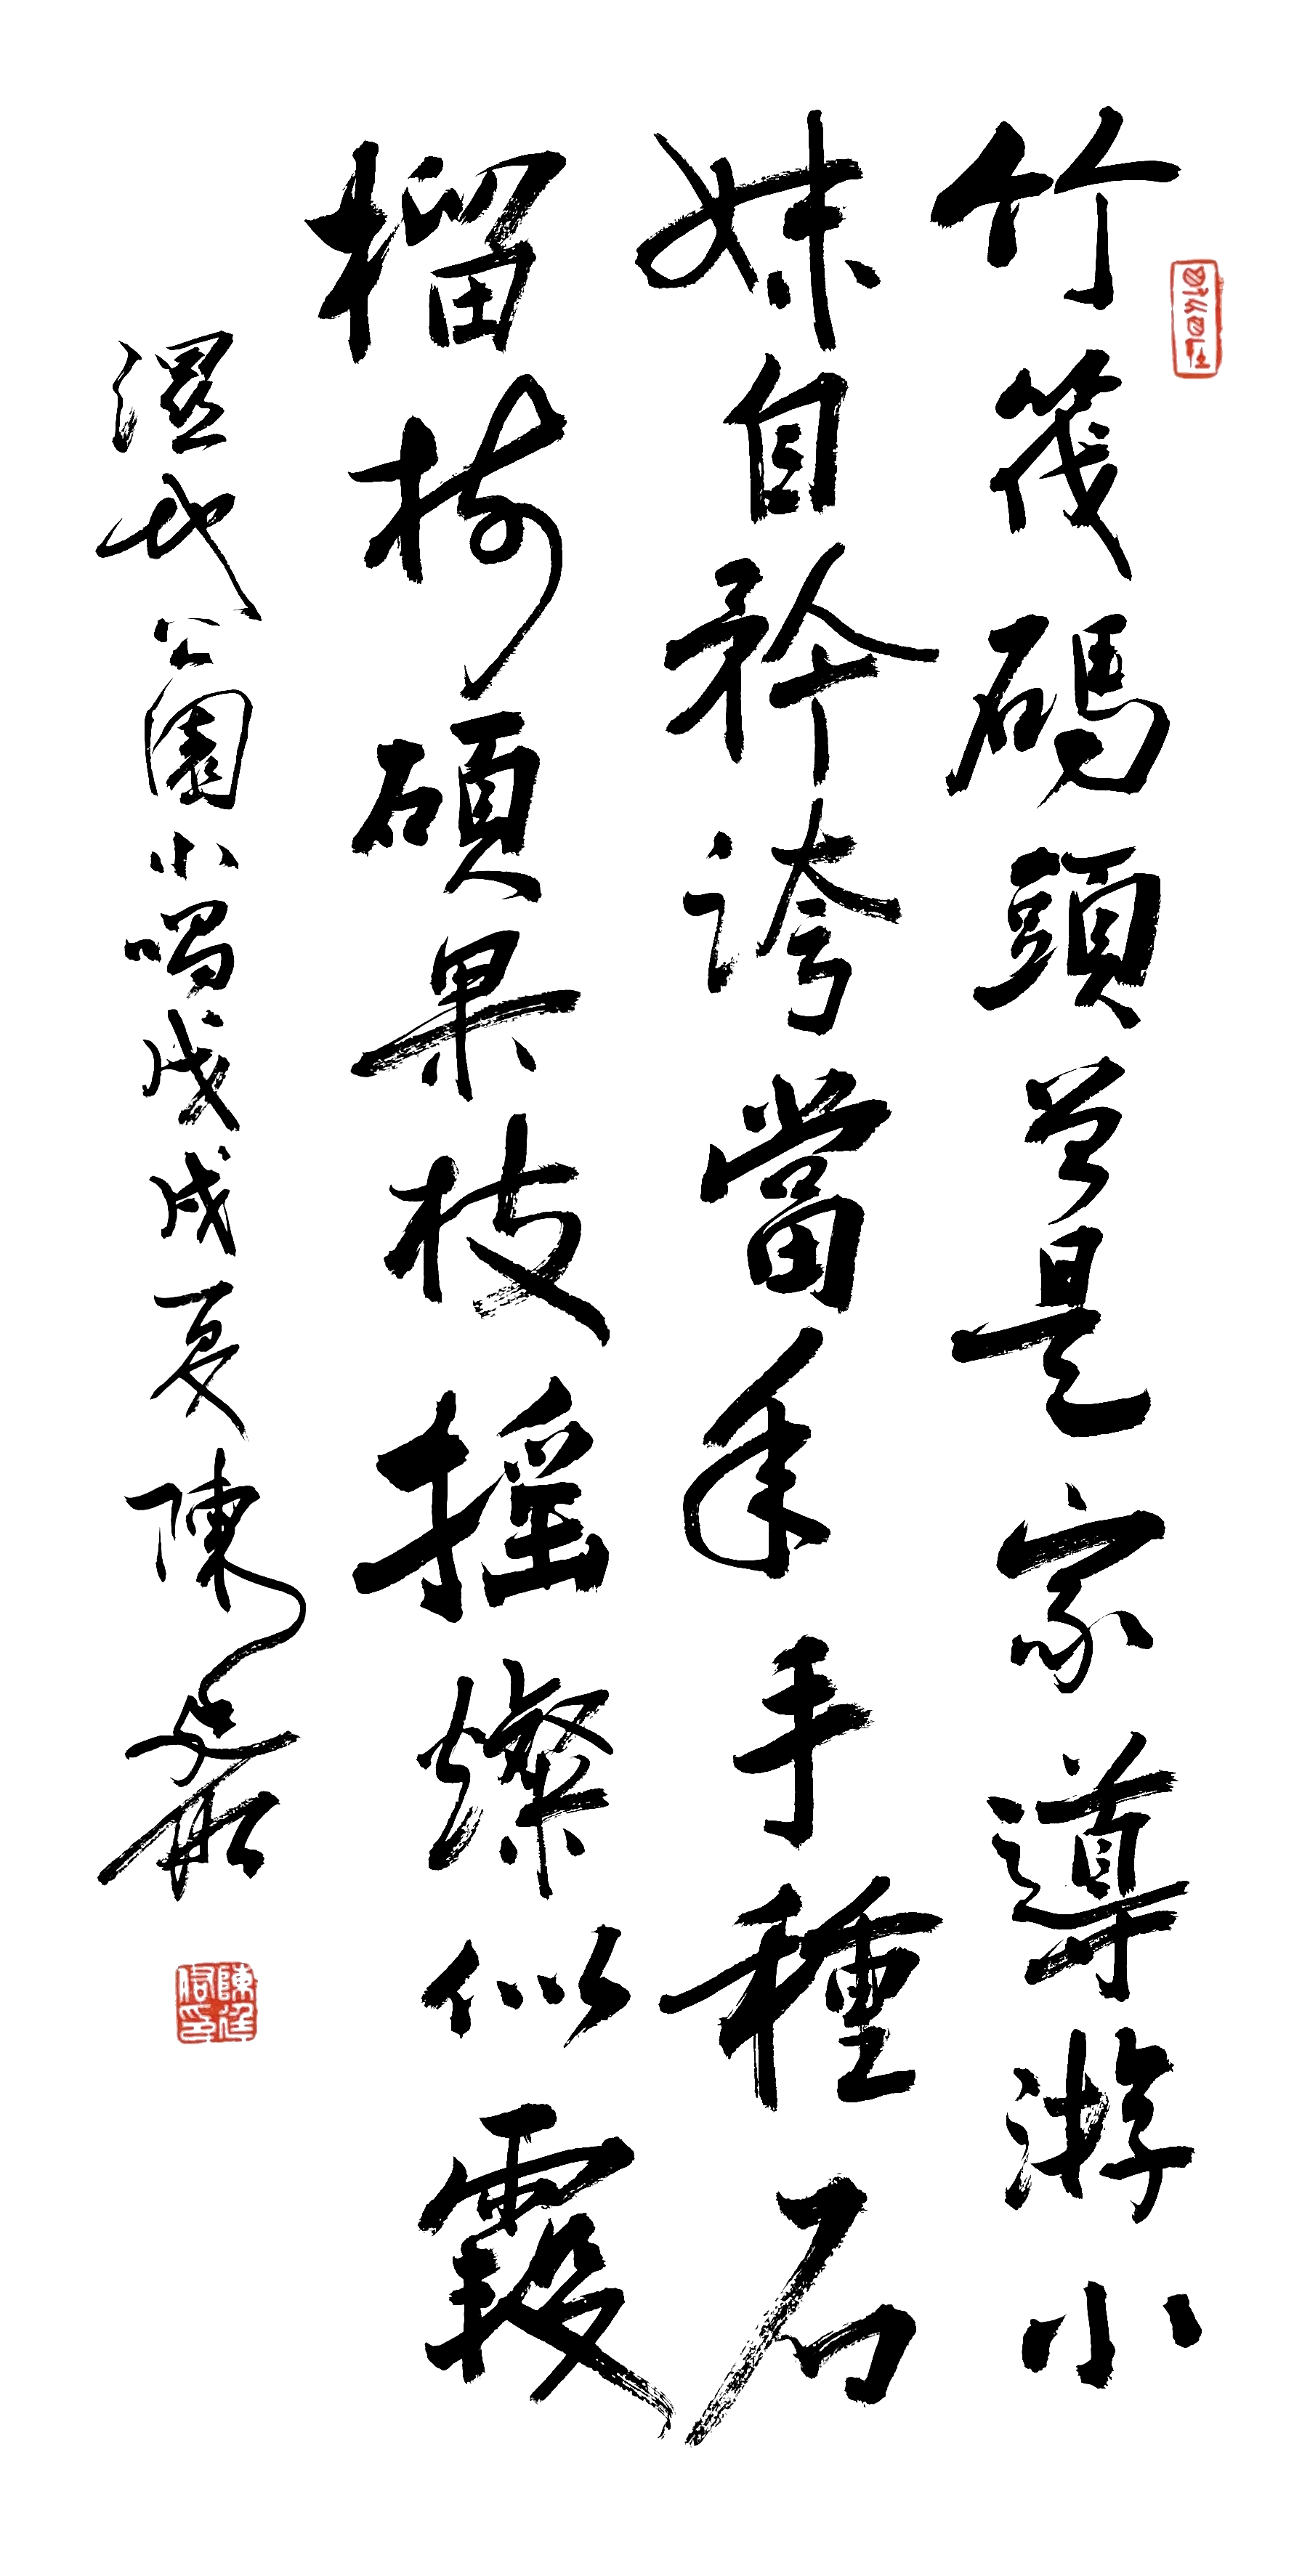 竹筏碼頭曾是家導游小
妹自矜誇當年手種石
榴樹碩果枝摇燦似霞
濕地公園小唱戊戌夏陳廷